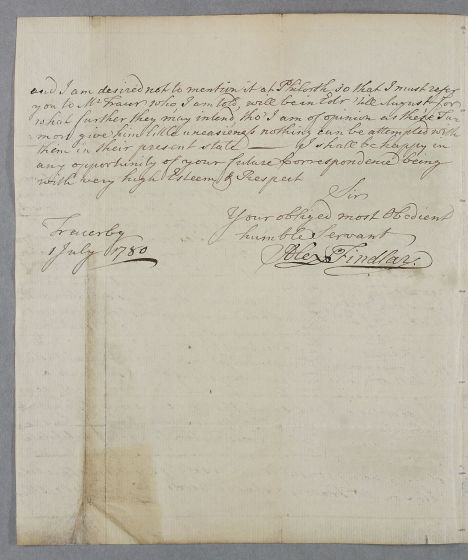 and I am desired not to mention it at Philorth, so that I must refer
you to Mr Fraser who, I am told, will be in Edr 'till August, for
what further they may intend, tho' I am of opinion as these
more give him little uneasiness nothing can be attempted with
them in their present state — I shall be happy in
any opportunity of your future Correspondence being
with very high Esteem & Respect
Sir
Your obliged most Obedient
humble Servant
Alexr Findlar.
1 July 1780